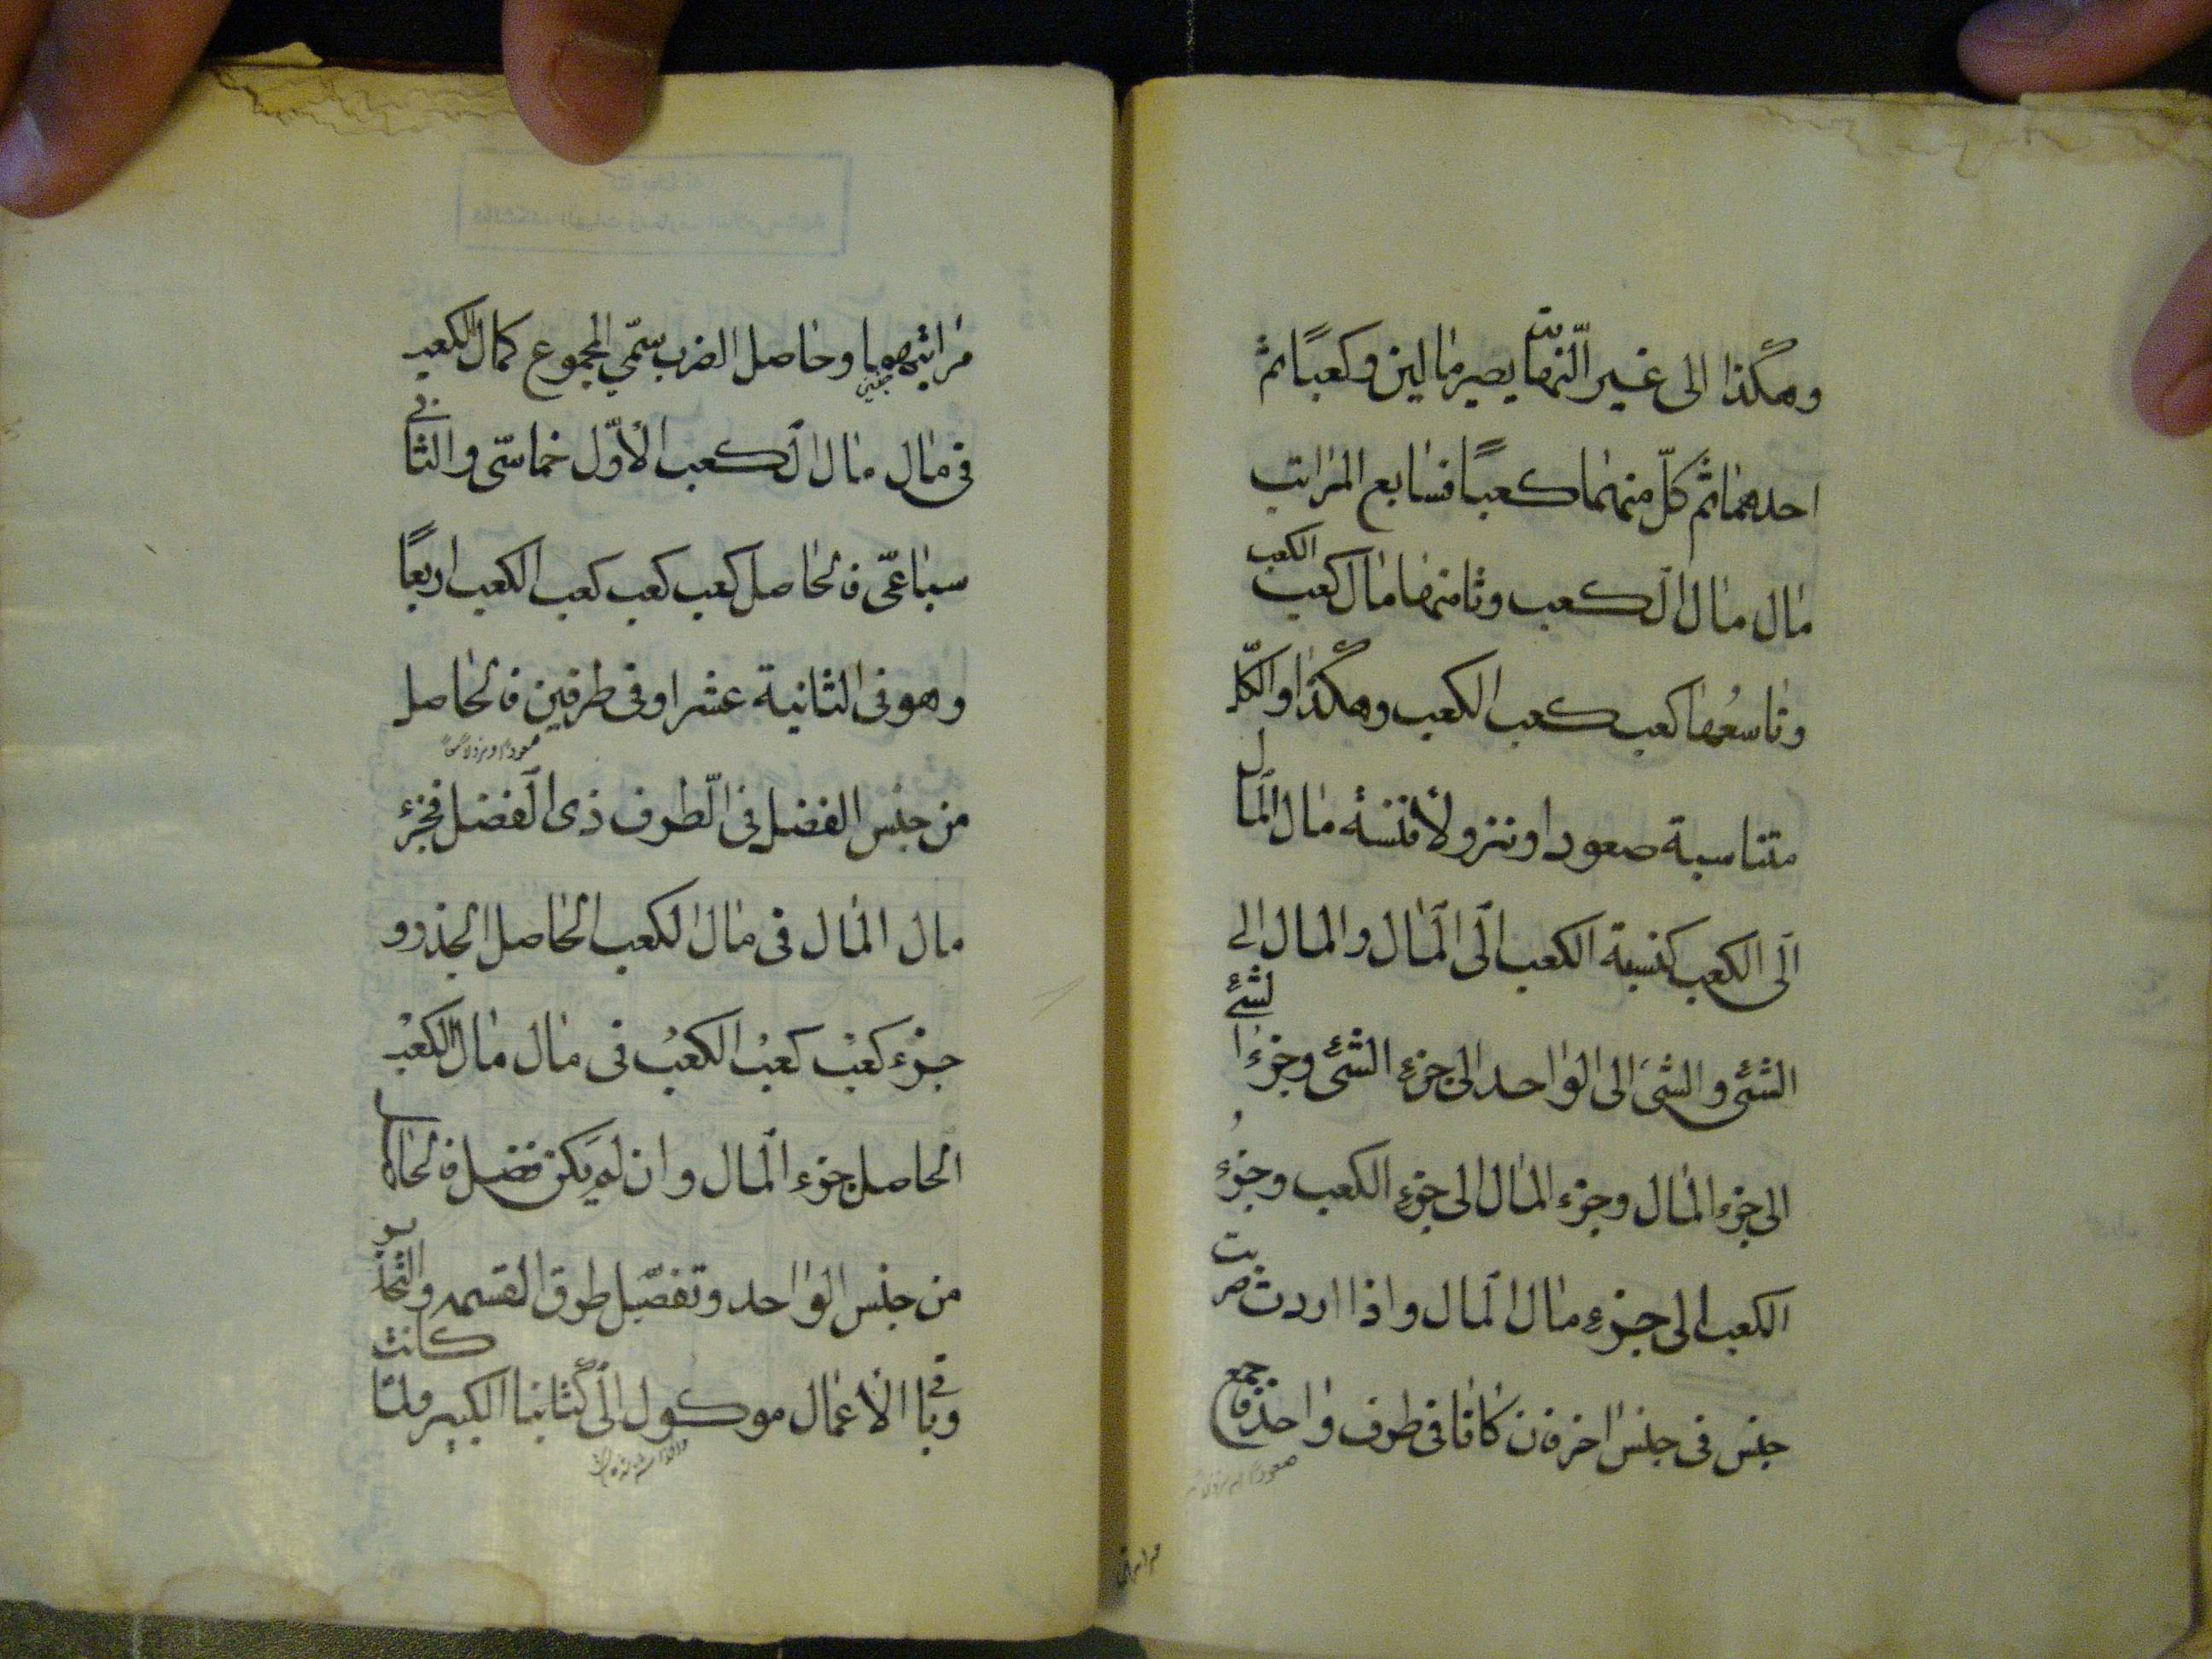 وهكذا الى غير النهاية يصير مالين وكعبًا ثم
احدهما ثم كلّ منهما كعبًا فسابع المراتب
مال مال الكعب وثامنها مال كعب الكعب
وتاسعُها كعب كعب الكعب وهكذا والكلّ
متناسبة صعودا ونزولا فنسبة مال المال
الى الكعب كنسبة الكعب الى المال والمال الى
الشئ والشئ الى الواحد الى جزء الشئ وجزء الشئ
الى جزء المال وجزء المال الى جزء الكعب وجزء
الكعب الى جزء مال المال واذا اردت ضرب
جنس فى جنس اخر فان كانا فى طرف واحد فاجمع
مراتبهما وحاصل الضرب سمّي المجموع كمال الكعب
فى مال مال الكعب الأوّل خماسّى والثانى
سباعىّ فالحاصل كعب كعب كعب الكعب اربعًا
وهو فى الثانية عشر او فى طرفين فالحاصل
من جنس الفضل فى الطرف ذى الفضل فجزء
مال المال فى مال الكعب الحاصل الجذر و
جزء كعب كعب الكعب فى مال مال الكعب
الحاصل جزء المال وان لم يكن فضل فالحاصل
من جنس الواحد وتفصيل طرق القسمه والتجذير
وباقى الأعمال موكول الى كتابنا الكبير ولمّا كانت